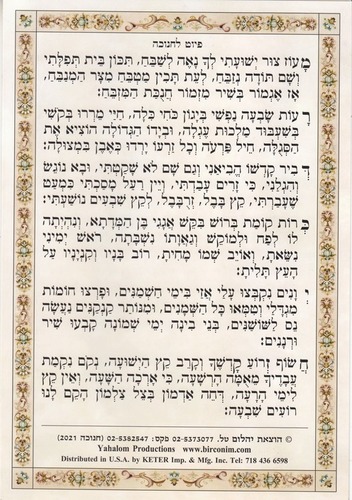 פיוט לחנוכה
מָעוֹז צוּר יְשׁוּעָתִי לְךָ נָאֶה לְשַׁבֵּחַ, תִּכּוֹן בֵּית תְּפִלָּתִי
וְשָׁם תּוֹדָה נְזַבֵּחַ, לְעֵת תָּכִין מַטְבֵּחַ מִצָּר הַמְנַבֵּחַ,
אָז אֶגְמוֹר בְּשִׁיר מִזְמוֹר חֲנֻכַּת הַמִּזְבֵּחַ:
רָעוֹת שָׂבְעָה נַפְשִׁי בְּיָגוֹן כֹּחִי כָּלָה, חַיַּי מֵרְרוּ בְּקֹשִׁי
בְּשִׁעְבּוּד מַלְכוּת עֶגְלָה, וּבְיָדוֹ הַגְּדוֹלָה הוֹצִיא אֶת
הַסְּגֻלָּה, חֵיל פַּרְעֹה וְכָל זַרְעוֹ יָרְדוּ כְּאֶבֶן בִּמְצוּלָה:
דְּבִיר קָדְשׁוֹ הֱבִיאַנִי וְגַם שָׁם לֹא שָׁקַטְתִּי, וּבָא נוֹגֵשׂ
וְהִגְלַנִי, כִּי זָרִים עָבַדְתִּי, וְיֵין רַעַל מָסַכְתִּי כִּמְעַט
שֶׁעָבַרְתִּי, קֵץ בָּבֶל, זְרֻבָּבֶל, לְקֵץ שִׁבְעִים נוֹשַׁעְתִּי:
כְּרוֹת קוֹמַת בְּרוֹשׁ בִּקֵּשׁ אֲגָגִי בֶּן הַמְּדָתָא, וְנִהְיָתָה
לוֹ לְפַח וּלְמוֹקֵשׁ וְגַאֲוָתוֹ נִשְׁבָּתָה, רֹאשׁ יְמִינִי
נִשֵּׂאתָ, וְאוֹיֵב שְׁמוֹ מָחִיתָ, רוֹב בָּנָיו וְקִנְיָנָיו עַל
הָעֵץ תָּלִיתָ:
יְוָנִים נִקְבְּצוּ עָלַי אֲזַי בִּימֵי חַשְׁמַנִּים, וּפָרְצוּ חוֹמוֹת
מִגְדָּלַי וְטִמְּאוּ כָּל הַשְּׁמָנִים, וּמִנּוֹתַר קַנְקַנִּים נַעֲשָׂה
נֵס לַשּׁוֹשַׁנִּים, בְּנֵי בִינָה יְמֵי שְׁמוֹנָה קָבְעוּ שִׁיר
וּרְנָנִים:
חֲשׂוֹף זְרוֹעַ קָדְשֶׁךָ וְקָרֵב קֵץ הַיְשׁוּעָה, נְקֹם נִקְמַת
עֲבָדֶיךָ מֵאֻמָּה הָרְשָׁעָה, כִּי אָרְכָה הַשָּׁעָה, וְאֵין קֵץ
לִימֵי הָרָעָה, דְּחֵה אַדְמוֹן בְּצֵל צַלְמוֹן הָקֵם לָנוּ
רוֹעִים שִׁבְעָה:
© הוצאת יהלום טל. 02-5373077 פקס: 02-5382547 (חנוכה 2021)
Yahalom Productions www.birconim.com
Distributed in U.S.A. by KETER Imp. & Mfg. Inc. Tel: 718 436 6598